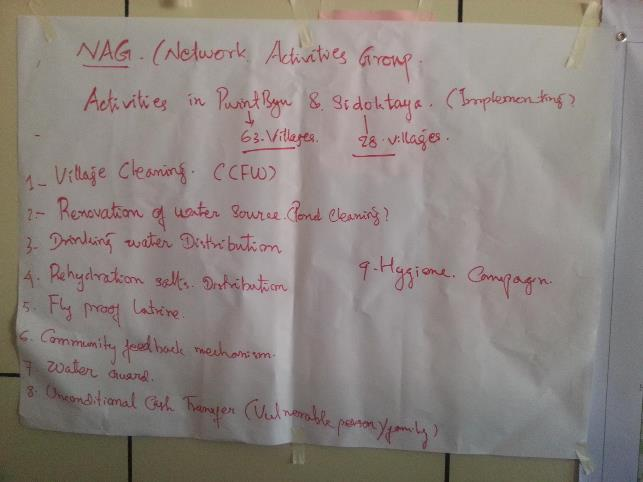 NAG. (Network Activities Group.
Activities in PwintByu & Sidoktaya. (Implementing)
63-Villages. 28-villages.
1- Village Cleaning. (CFW)
2- Renovation of water source. (Pond Cleaning)
3- Drinking water Distribution
4. Rehydration salts. Distribution
5. Fly proof Latrine.
6. Community feedback mechanism.
7. Water Guard.
8. Unconditional Cash Transfer (Vulnerable person/family)
9. Hygiene. Campagn.